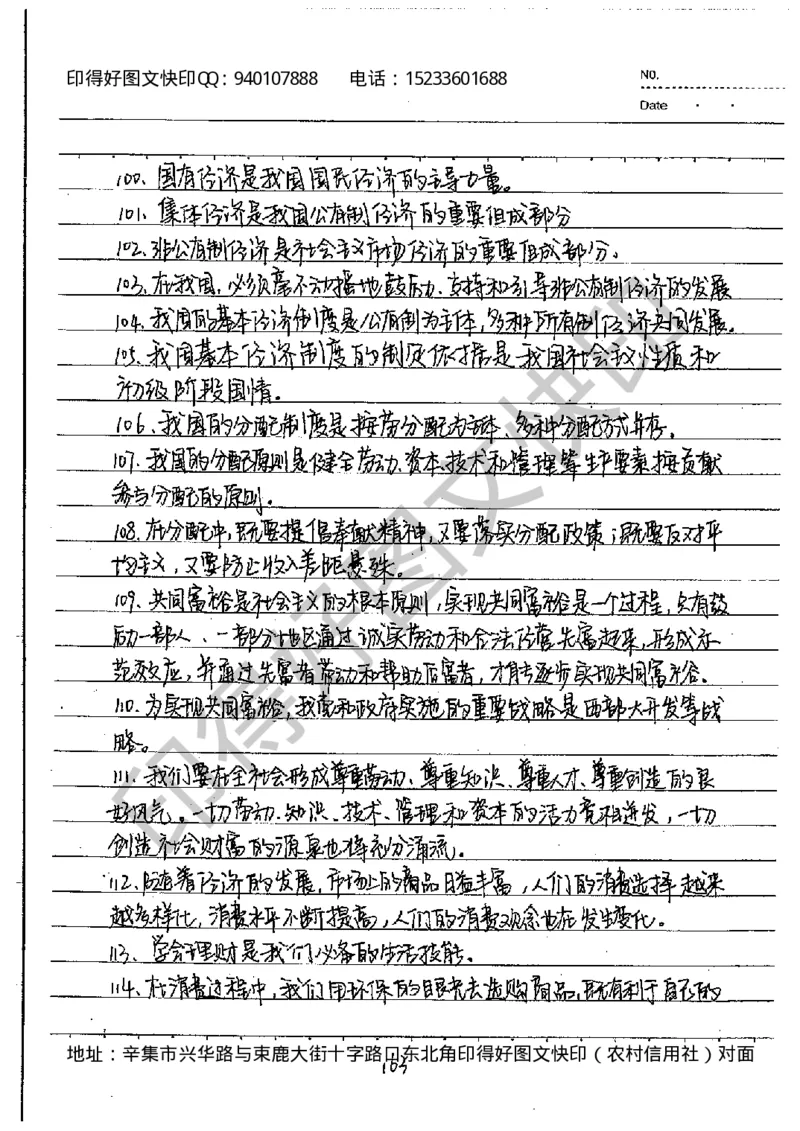 印得好图文快印QQ：940107888 电话：15233601688
NO.
Date
100、国有经济是我国国民经济的主导力量。
101、集体经济是我国公有制经济的重要组成部分
102、非公有制经济是社会主义市场经济的重要组成部分、
103、在我国，必须毫不动摇地鼓励、支持和引导非公有制经济的发展
104、我国的基本经济制度是公有制为主体，多种所有制经济共同发展。
105、我国基本经济制度的制定依据是我国社会主义性质和
初级阶段国情。
106、我国的分配制度是按劳分配为主体，多种分配方式并存。
107、我国的分配原则是健全劳动、资本、技术和管理等生产要素按贡献
参与分配的原则。
108、在分配中，既要提倡奉献精神，又要落实分配政策；既要反对平
均主义，又要防止收入差距悬殊。
109、共同富裕是社会主义的根本原则，实现共同富裕是一个过程，只有鼓
励一部人、一部分地区通过诚实劳动和合法经营先富起来，形成示
范效应，并通过先富者带动和帮助后富者，才能逐步实现共同富裕。
110、为实现共同富裕，我党和政府实施的重要战略是西部大开发等战
略。
111、我们要在全社会形成尊重劳动、尊重知识、尊重人才、尊重创造的良
好风气。一切劳动、知识、技术、管理和资本的活力竞相迸发，一切
创造社会财富的源泉也将充分涌流。
112、随着经济的发展，市场上的商品日益丰富，人们的消费选择越来
越多样化，消费水平不断提高，人们的消费观念也在发生变化。
113、学会理财是我们必备的生活技能。
114、在消费过程中，我们用环保的眼光去选购商品，既有利于自己的
地址：辛集市兴华路与束鹿大街十字路口东北角印得好图文快印（农村信用社）对面
103
印得好图文快印